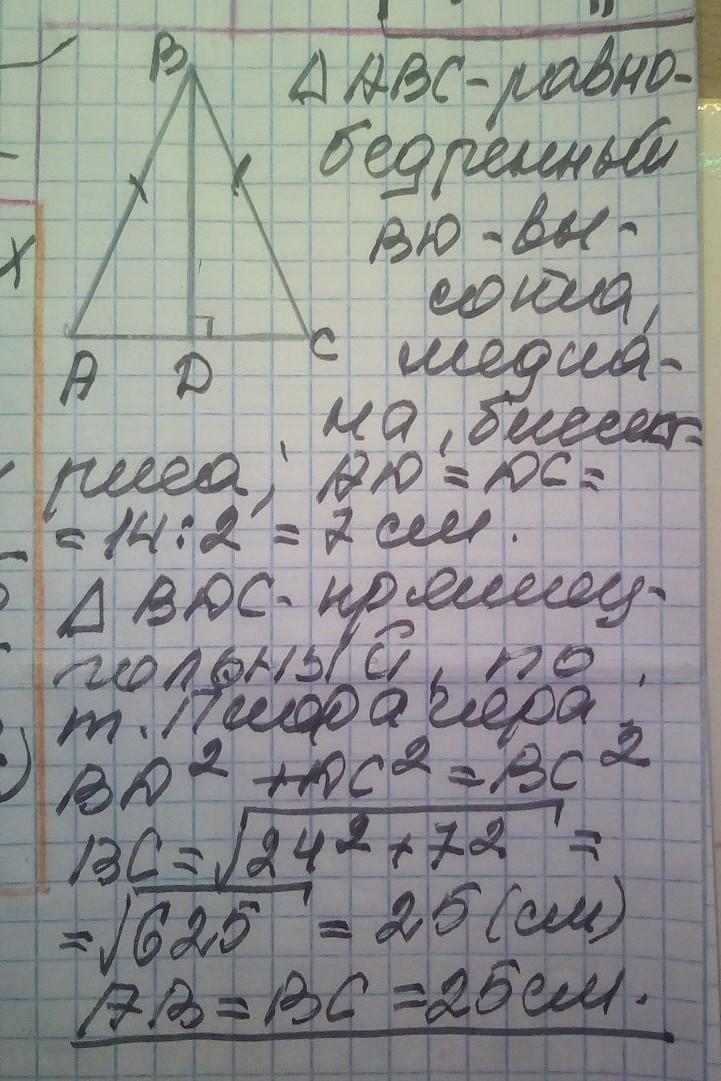 B
A D C
Δ ABC - равно-
бедренный
BD - вы-
сота,
медиа-
на, биссект-
риса; AD = DC =
= 14 : 2 = 7 см.
Δ BDC - прямоу-
гольный, по
т. Пифагора
BD² + DC² = BC²
BC = √24² + 7² =
= √625 = 25 (см)
AB = BC = 25 см.